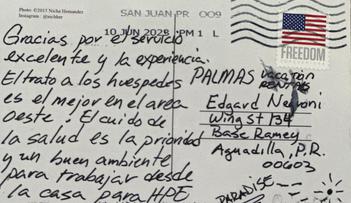 Photo: ©2017 Nicha Hernandez
SAN JUAN PR 009
10 JUN 2028 PM 1 L
FREEDOM
Gracias por el servicio
excelente y la experiencia.
El trato a los huespedes
es el mejor en el area
Oeste! El cuido de
la salud es la prioridad
y un buen ambiente
para trabajar desde
la casa para HPE
PALMAS vacation
Edgard
Wing St 134
Base Ramey
Aguadilla, P.R.
00603
PARADISE